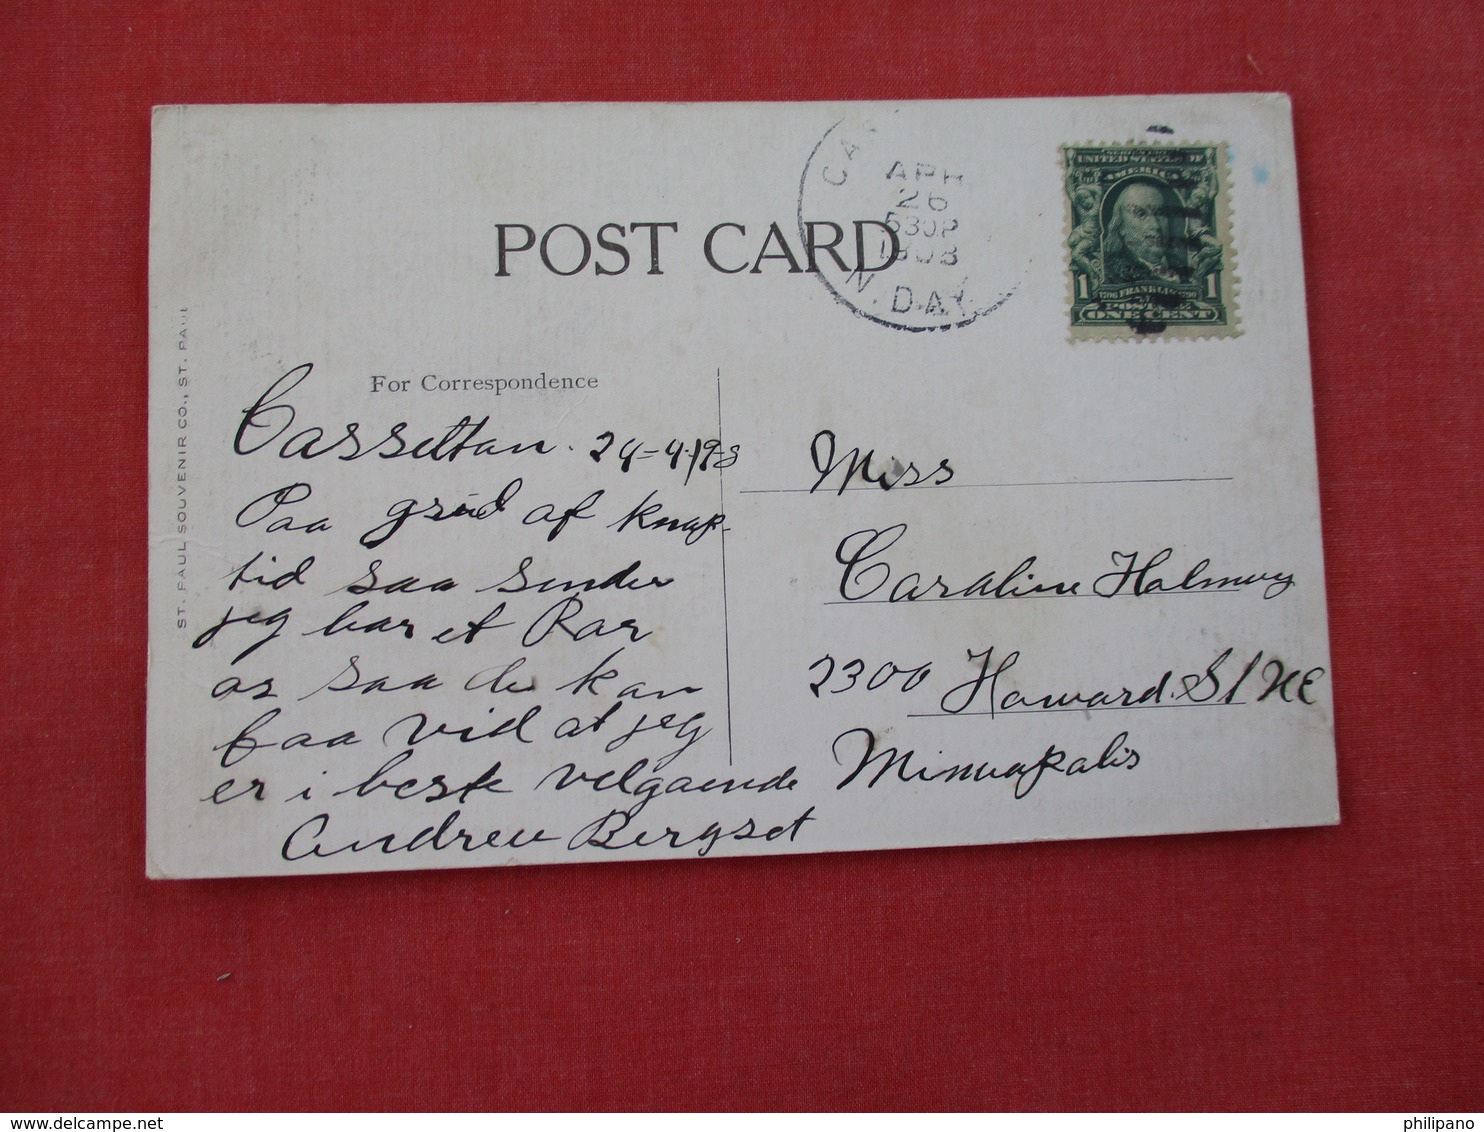 POST CARD
For Correspondence
ST. PAUL SOUVENIR CO., ST. PAUL
APR
26
530P
1908
N. DAK.
SERIES 1902
UNITED STATES OF
AMERICA
1 1
FRANKLIN
POSTAGE
ONE CENT
Casselton. 24-4-1908
Paa grund af knap-
tid saa sender
jeg bar et Kar
os saa du kan
faa vid at jeg
er i beste velgaende
Andrew Bergset
Miss
Caroline
2300 Howard St NE
Minneapolis
philipano
www.delcampe.net